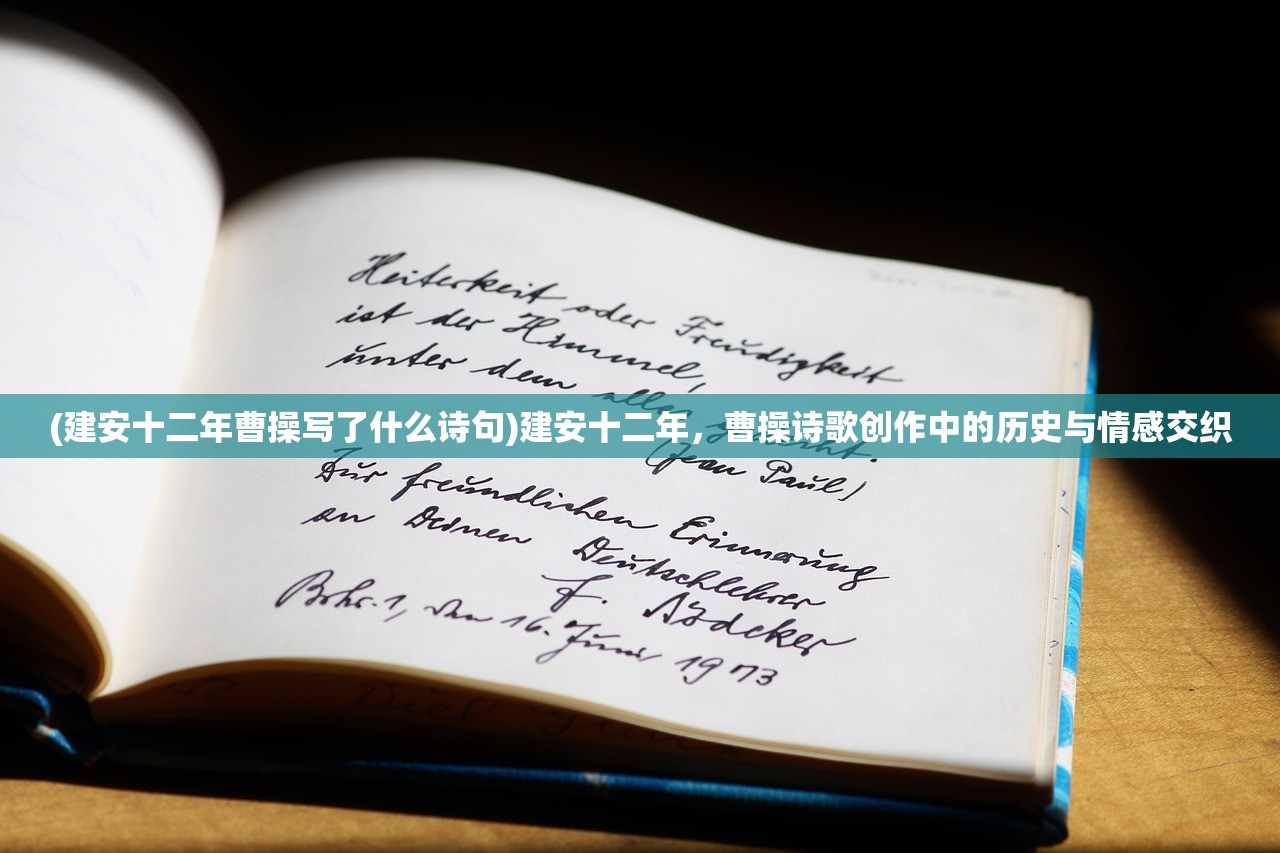 Heiterkeit oder Freudigkeit
ist der Himmel,
unter dem alles
(建安十二年曹操写了什么诗句)建安十二年，曹操诗歌创作中的历史与情感交织
(Jean Paul)
Zur freundlichen Erinnerung
an Deinen Deutschlehrer
Bohr. 1, den 16. Juni 1973